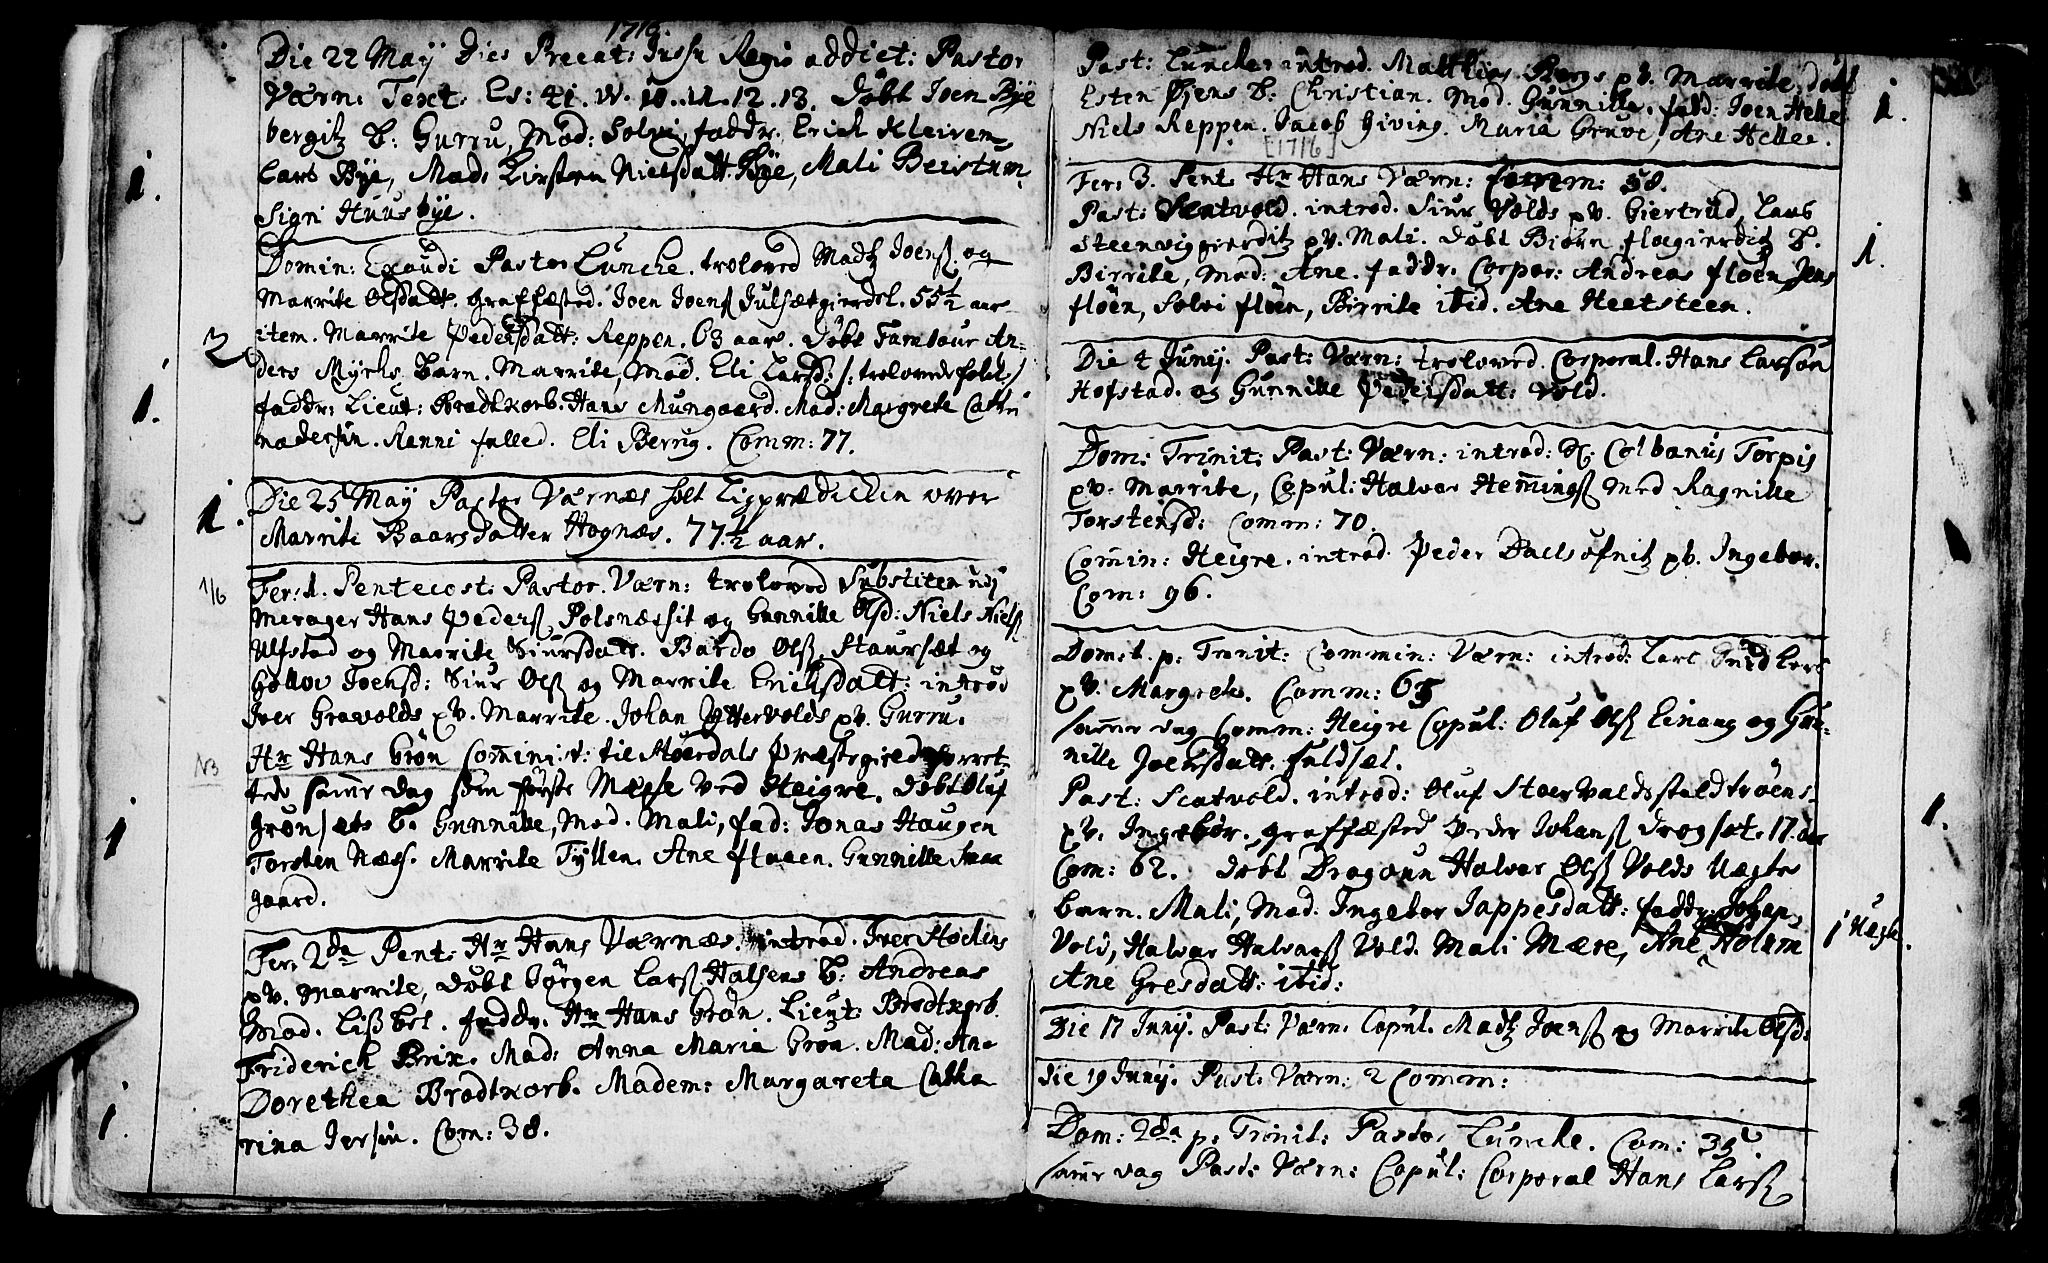 1716.
Die 22 Maÿ Dies Precat: Jussu Regis addict: Pastor
Værn: Text. Es: 41. W. 10. 11. 12. 13. Døbt Joen Bÿe
bergitz B. Gurru, Mod: Solvi, faddr. Erich Kleiven
Lars Bÿe, Mad. Kirsten Nielsdatt. Bÿe, Mali Beistum
Signi Huusbÿe.
1.
Domin: Exaudi Pastor Luncke. troloved Madtz Joenß. og
Marrite Olsdatt. Graffæsted. Joen Joenß Julsætgierdet. 55½ aar
item. Marrite Pedersdatt: Reppen. 63 aar. Døbt Tambour An-
2
ders Mÿrchs. Barn. Marrite, Mod. Eli Larsd: /: trolovede folck/
faddr: Lieut: Brodtkorb. Hans Mungaard. Mad: Margrete Catri
1.
nadersin. Ranni falled. Eli Berug. Comm: 77.
Die 25 Maÿ Pastor Værnæs holt Ligprædicken over
1.
Marrite Baarsdatter Hognæs. 77½ aar.
1/6
Fer: 1. Pentecost: Pastor. Værn: troloved
Merager Hans Pederß Polsnæssit og Gunnille Olsd: Niels Nielß
Ulstad og Marrite Siursdatt. Bardo Olß. Staursæt og
Joensd: Siur Olß og Marrite Erichsdatt: introd
Iver Gravolds pV. Marrite. Johan Yttervolds pV. Gurru.
N3
Hr Hans Grøn Cominist: til Størdals Præstegield forret-
tede samme dag sin første Messe ved Heigre. Døbt Oluf
Grønsæts B. Gunnille, Mod. Mali, fad: Jonas Haugen
1
Torsten Næss. Marrite Tÿllen. Ane flaaen. Gunnille
gaard.
Fer. 2da Pent. Hr Hans Værnæs. introd. Iver Stockens
pV. Marrite, Døbt Jørgen Larß Halsens B: Andreas
Mod. Lißbet. faddr. Hr Hans Grøn. Lieut: Brodtkorb
Friderich Brix. Mad: Anna Maria Grøn. Mad: An-
Dorethea Brodtkorb. Madem: Margareta Catha
1.
rina Jersin. Com: 38.
Past: Luncke. introd. Matthias Bergs pV. Marrite, døbt
Esten Øÿens B: Christian. Mod. Gunnille. fadd: Joen Helle
1.
Niels Reppen. Jacob Giving. Maria Gruve, Ane Hellee.
[1716]
Fer. 3. Pent. Hr Hans Værn: Comm: 58.
Past: Scatvold. introd. Siur Volds pV. Giertrud, Lars
Steenviggierditz pV. Mali. Døbt Biørn floegierditz B.
1.
Birrite, Mod: Ane. faddr. Corpor: Andreas floen Jens
fløen, Solvi fløen, Birrite ibid. Ane Heetsteen.
Die 4 Junij. Past: Værn: troloved Corporal. Hans Larsøn
Hofstad. og Gunnille Pedersdatt: Vold.
Dom: Trinit: Past: Værn: introd: Colbanus Torpis
pV. Marrite, Copul: Halvor Hemmingß med Ragnille
Torstensd: Comm: 70.
Comin: Heigre. introd. Peder pV. Ingebor.
Com: 96.
Dom. 1. p. Trinit: Commin: Værn: introd: Lars
pV. Margrete. Comm: 65
samme dag Comm: Heigre Copul: Oluf Olß Einang og Gun-
nille Joensdatt. fuldsæt.
Past: Scatvold. introd: Oluf
1.
pV. Ingebor. Graffæsted Peder Johanß Drogsæt. 17. aar
Com: 62. Døbt Dragoun Halvor Olß Volds Uægte
barn. Mali, Mod. Ingebor Jappesdatt: faddr:
1 Uægte.
Vold, Halvar Halvarß Vold. Mali Mære, Ane Holum
Ane Gresdatt: ibid:
Die 17 Junij. Past: Værn. Copul. Madtz Joenß og Marrite Olsd:
Die 19 Junij. Past: Værn: 2 Comm:
Dom: 2da p. Trinit: Pastor Luncke. Com:
samme dag Past: Værn: Copul: Corporal Hans Larß